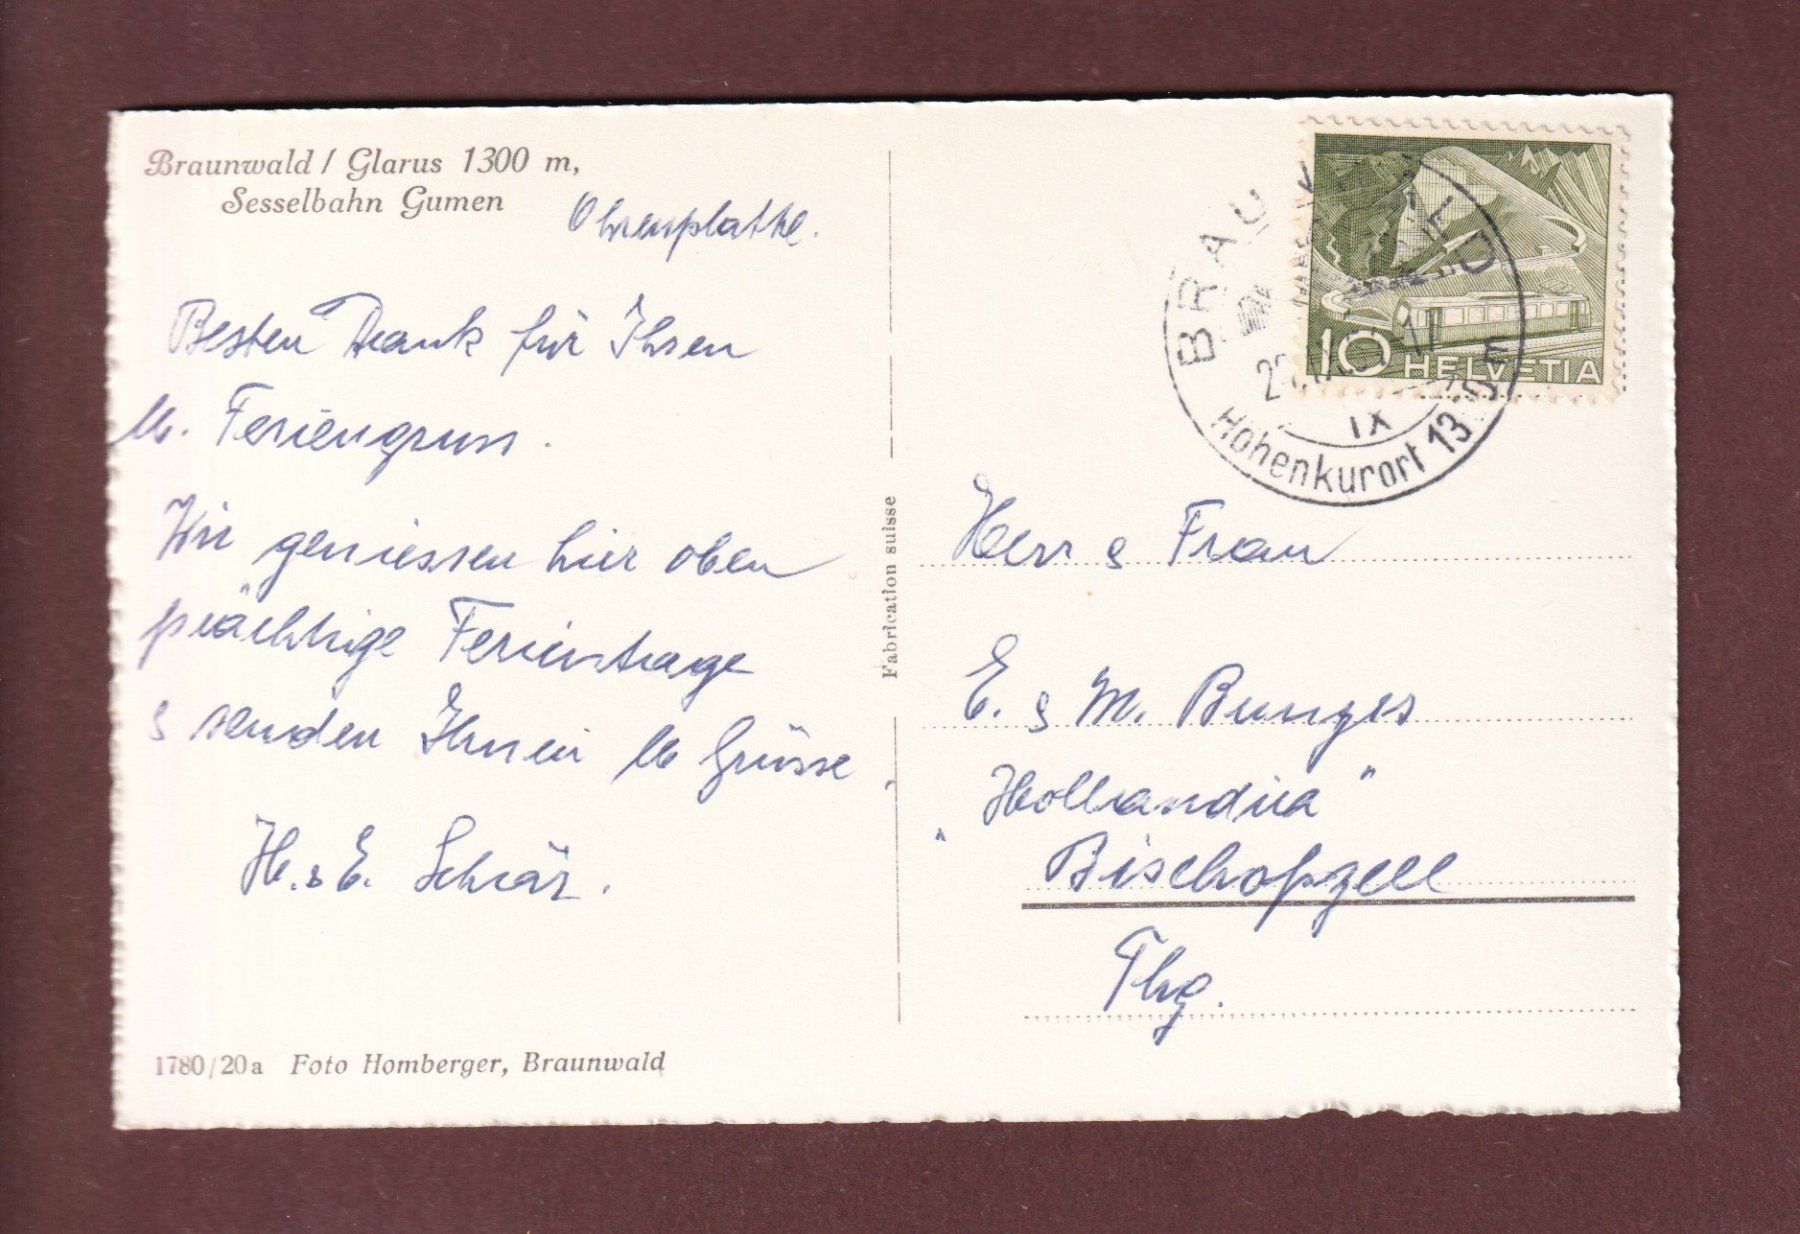 Braunwald / Glarus 1300 m,
Sesselbahn Gumen
Ohrenplatte.
Besten Dank für Ihren
lb. Feriengruss.
Wir geniessen hier oben
prächtige Ferientage
& senden Ihnen lb Grüsse,
H. & E. Schär.
1780/20a Foto Homberger, Braunwald
Fabrication suisse
10 HELVETIA
BRAU
IX
Höhenkurort 13
Herr & Frau
E. & M. Bunges
"Hollandia"
Bischofzell
Thg.